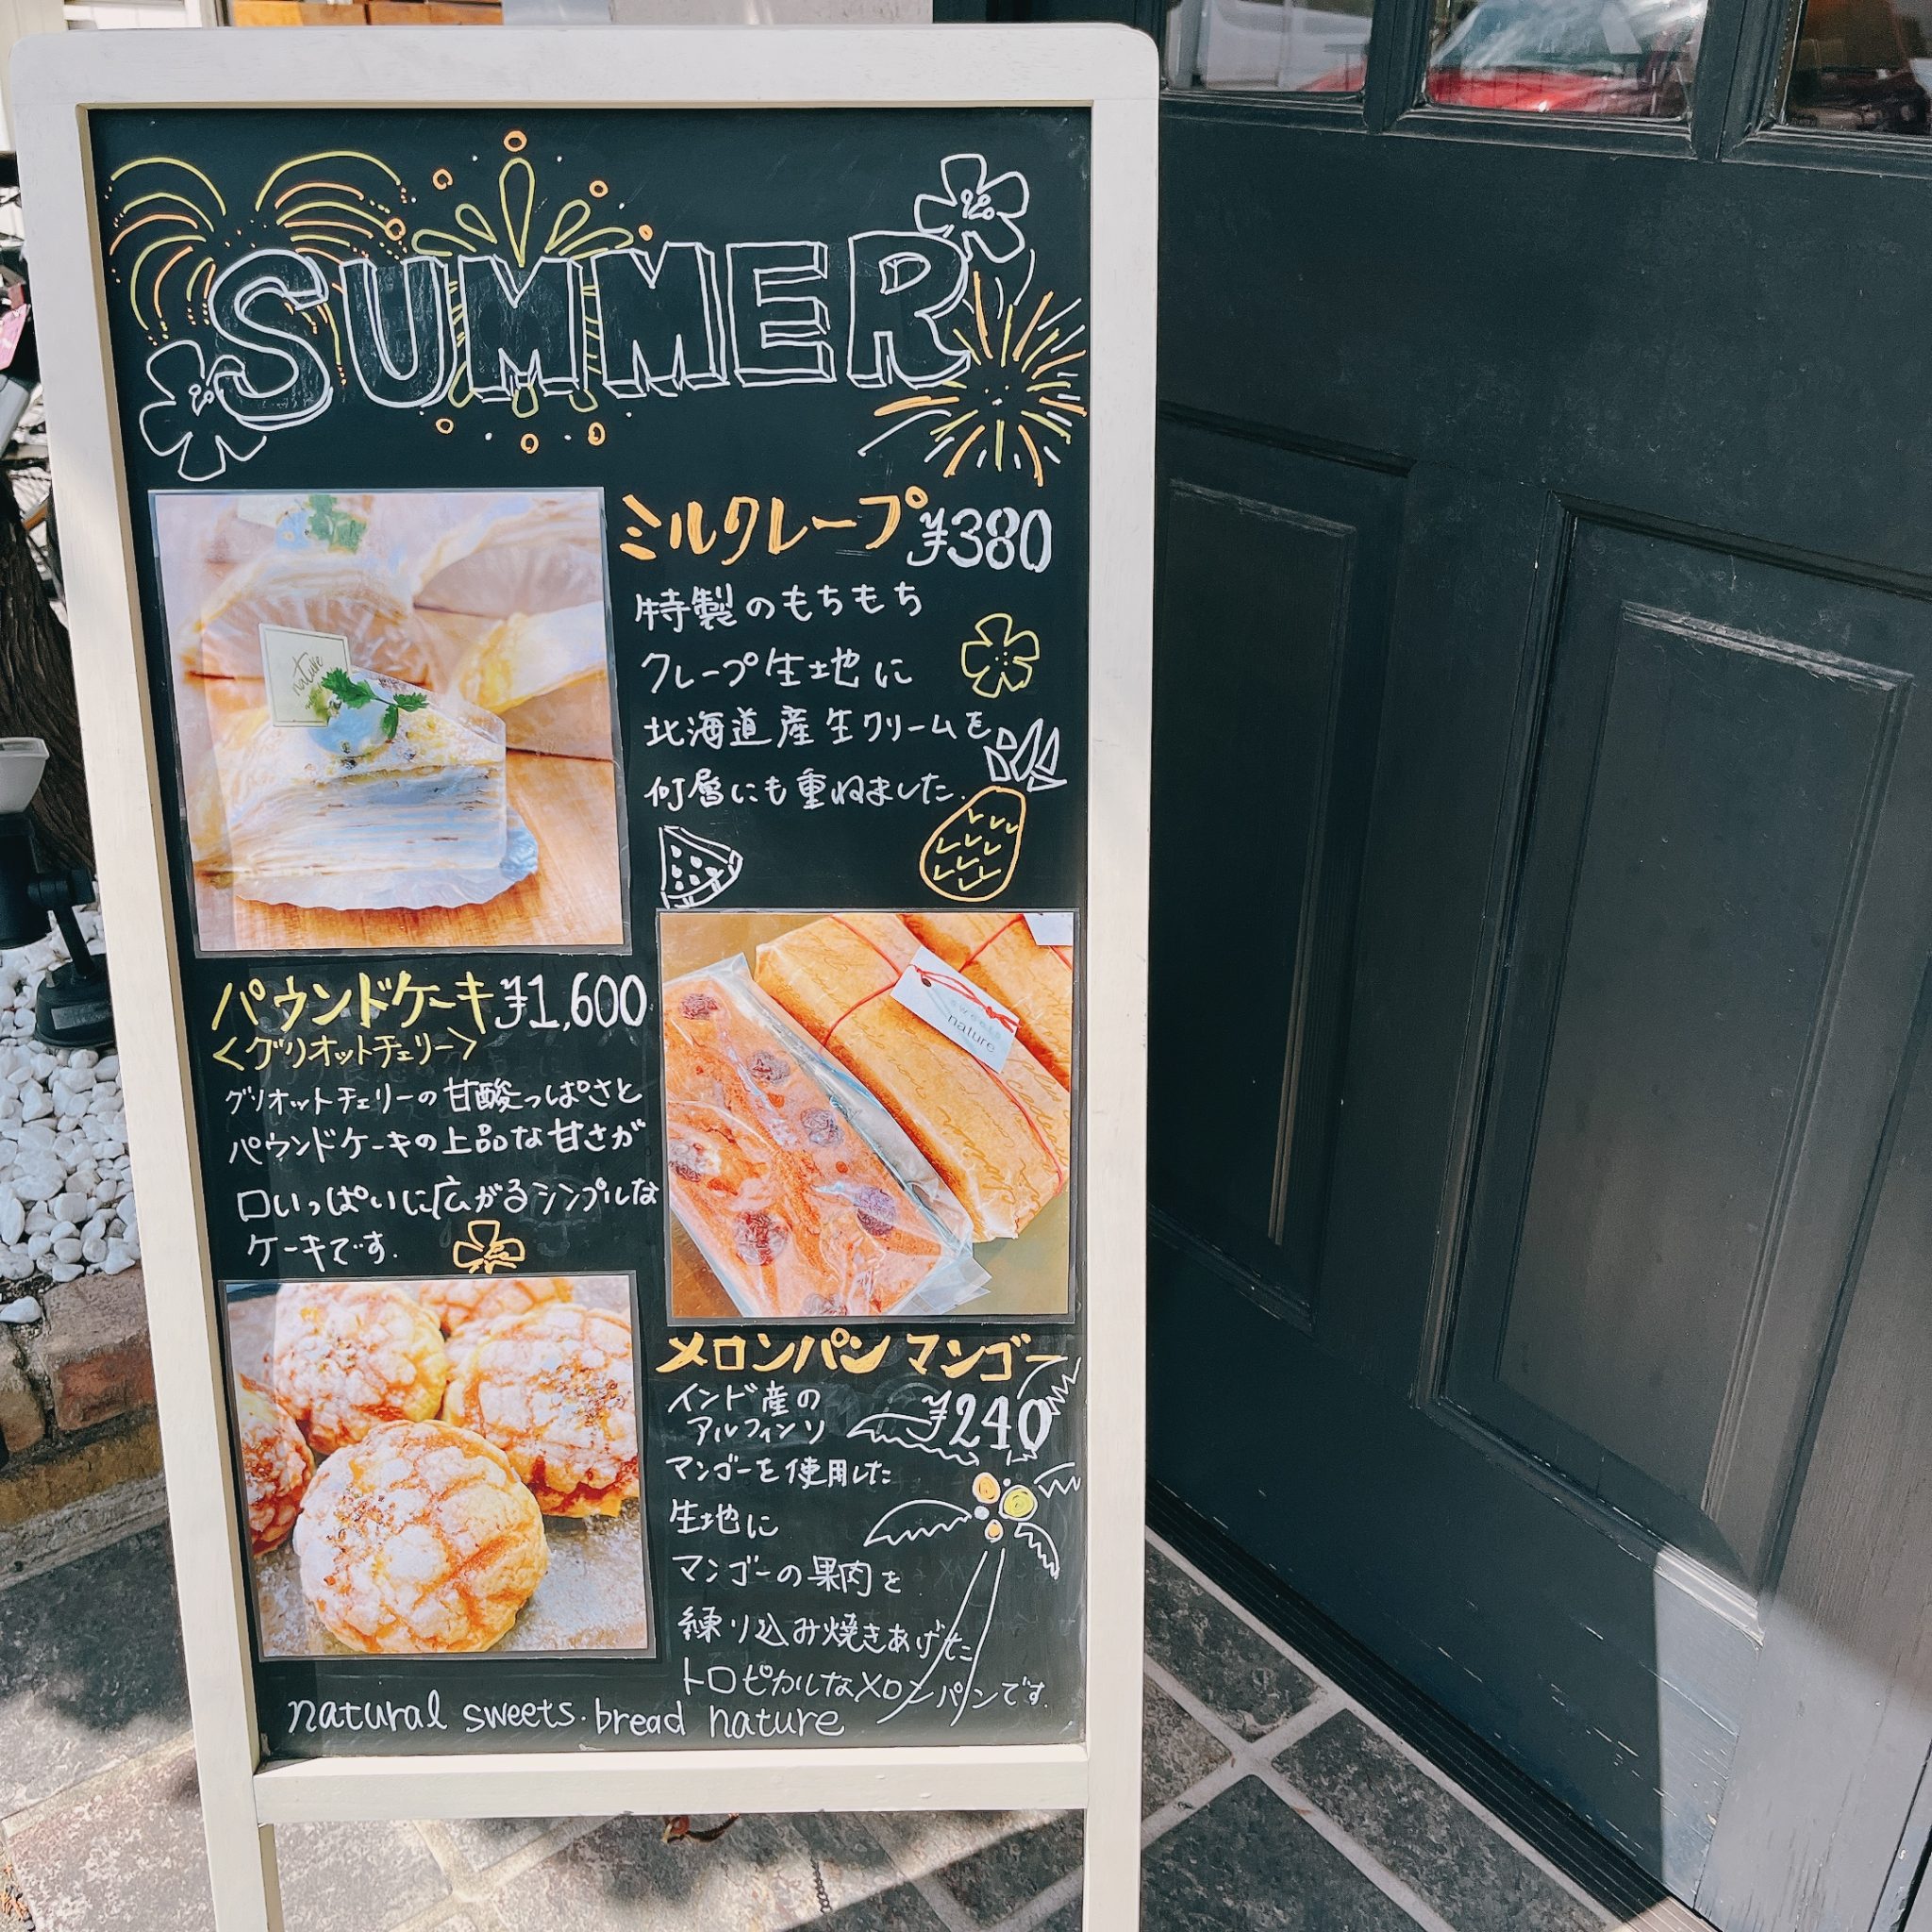 SUMMER
ミルクレープ ¥380
特製のもちもち
クレープ生地に
北海道産生クリームを
何層にも重ねました.
nature
パウンドケーキ ¥1,600
<グリオットチェリー>
グリオットチェリーの甘酸っぱさと
パウンドケーキの上品な甘さが
口いっぱいに広がるシンプルな
ケーキです.
sweets
nature
メロンパン マンゴー
¥240
インド産の
アルフィンソ
マンゴーを使用した
生地に
マンゴーの果肉を
練り込み焼きあげた
トロピカルなメロンパンです.
natural sweets・bread nature